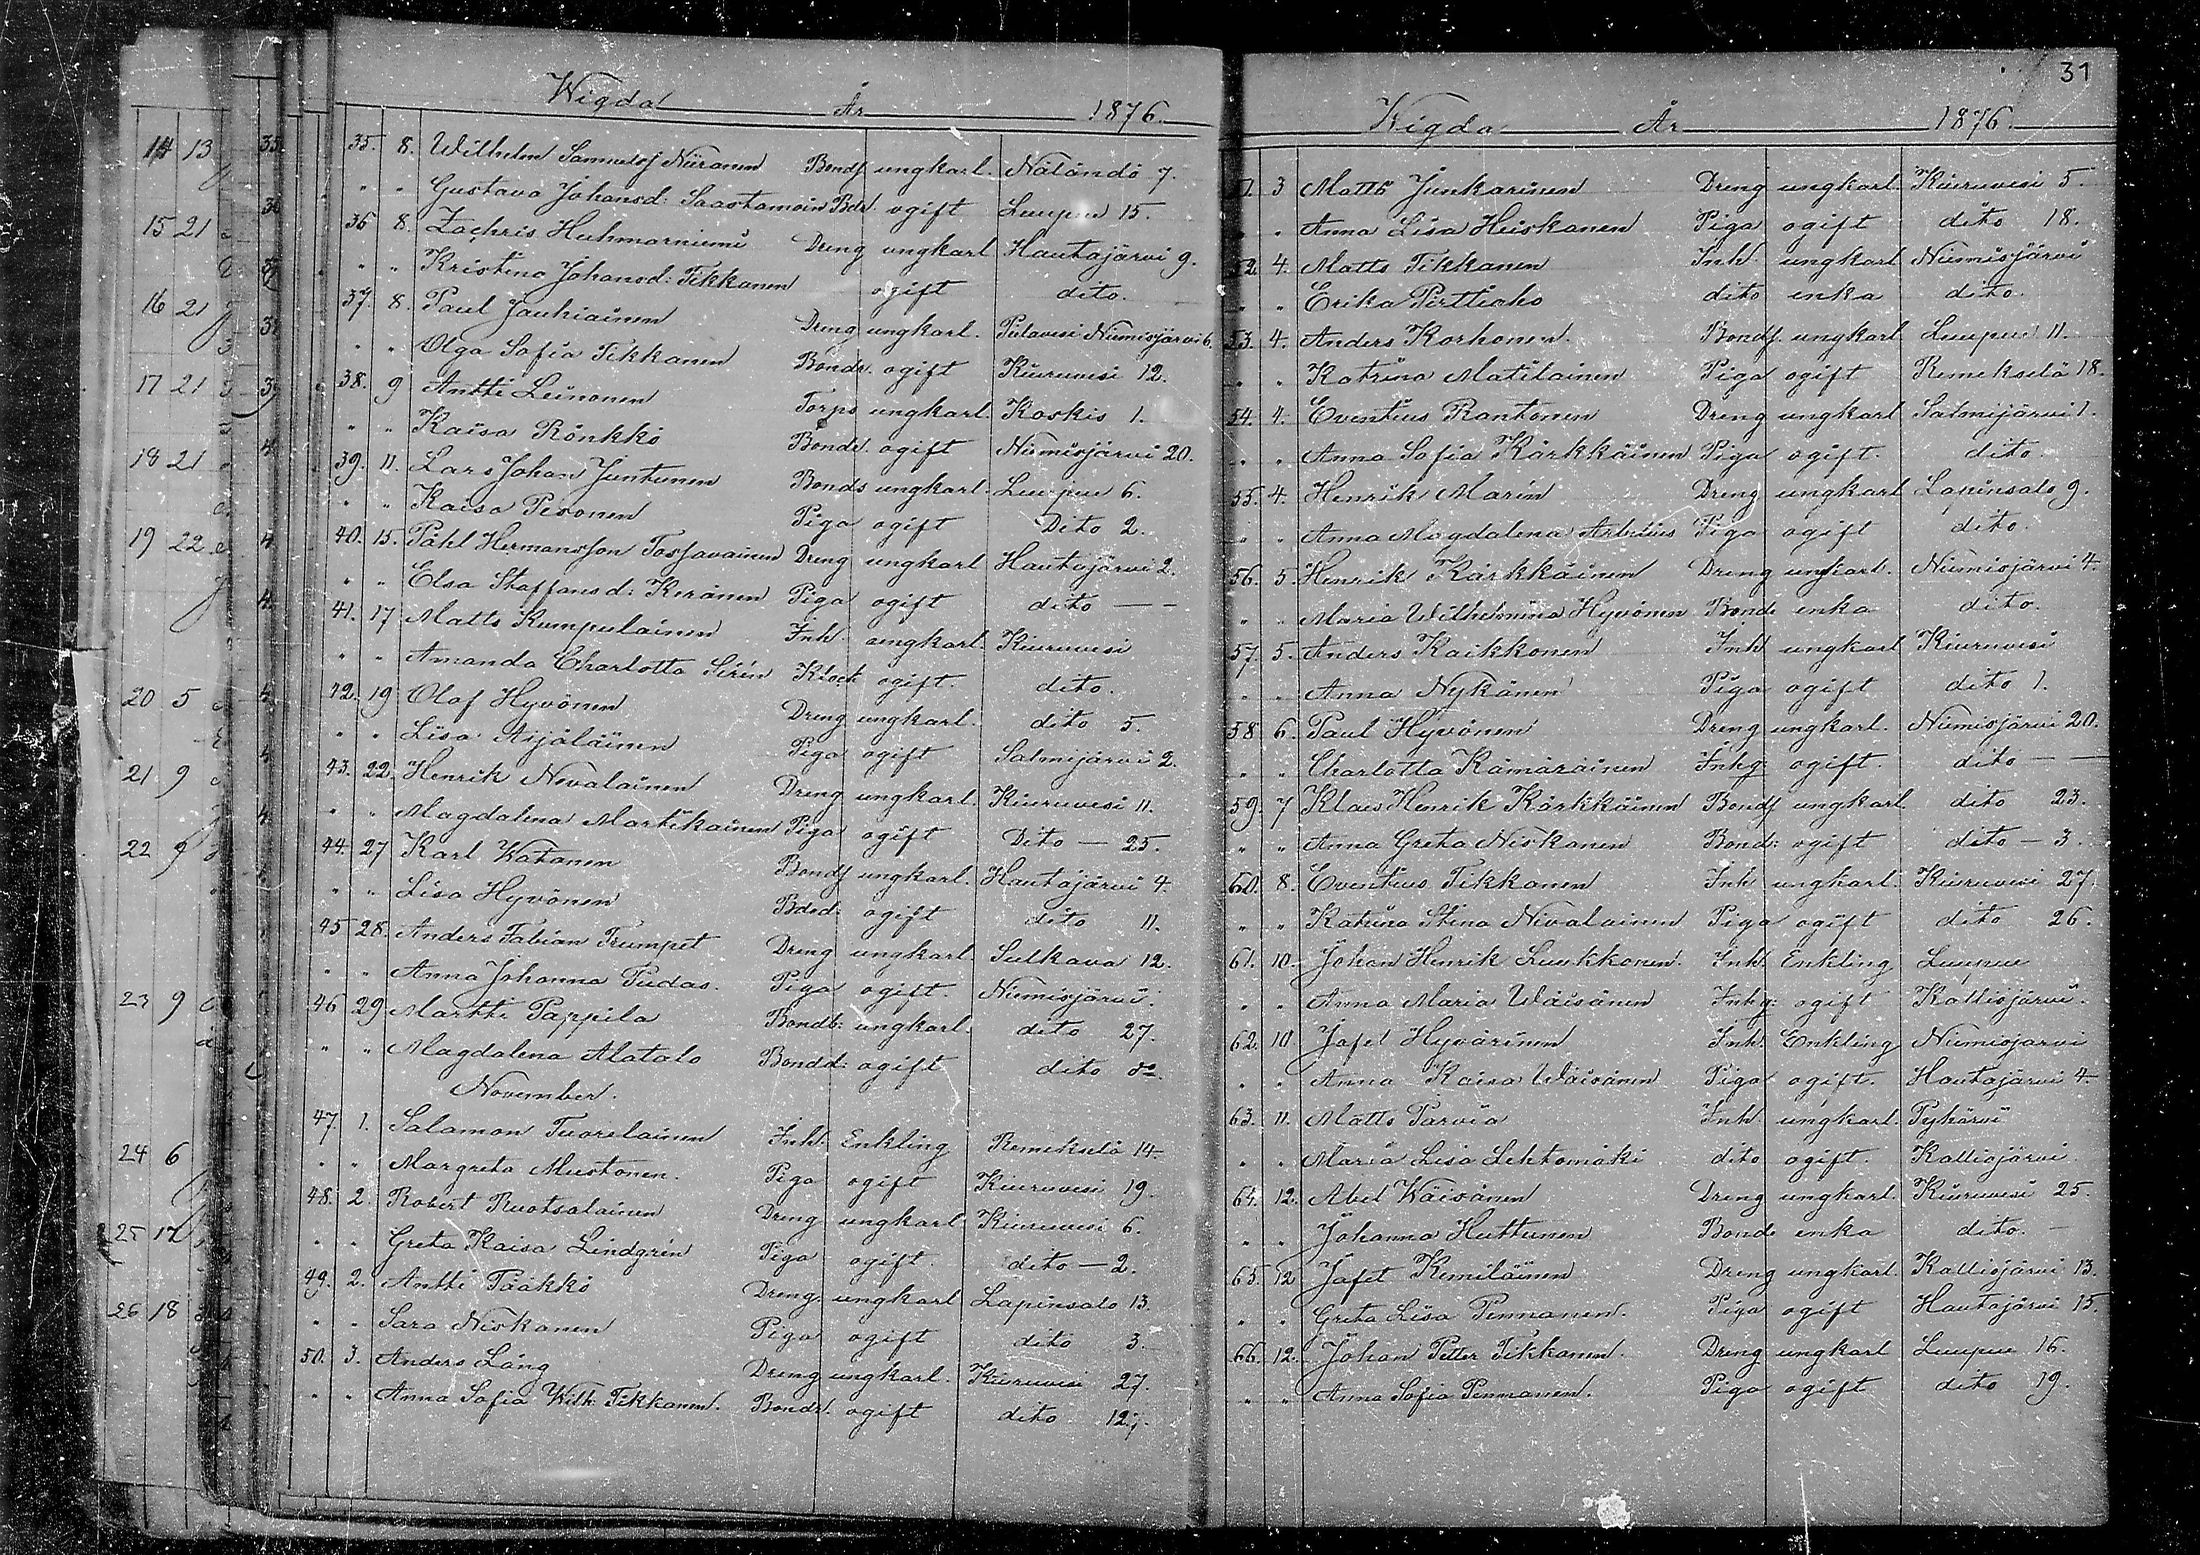 Wigda År 1876.
35. 8. Wilhelm Samuelsf Niiranen Bondf. ungkarl. Näläntö 7.
" " Gustava Johansd: Saastamoin Bdr. ogift Luupue 15.
36 8. Zachris Huhmarniemi Dreng ungkarl Hautajärvi 9.
" " Kristina Johansd: Tikkanen ogift dito.
37. 8. Paul Jauhiainen Dreng ungkarl. Pielavesi Niemisjärvi 6.
" " Olga Sofia Tikkanen Bonde. ogift Kiuruvesi 12.
38. 9 Antti Leinonen Torps ungkarl Koskis 1.
" " Kaisa Rönkkö Bonde. ogift Niemisjärvi 20.
39. 11. Lars Johan Juntunen Bonds ungkarl. Luupue 6.
" " Kaisa Piironen Piga ogift Dito 2.
40. 15. Påhl Hermansson Tossavainen Dreng ungkarl Hautajärvi 2.
" " Elsa Staffansd: Keränen Piga ogift dito — -
41. 17 Matts Kumpulainen Inh. ungkarl. Kiuruvesi
" " Amanda Charlotta Sirén Klock ogift. dito.
42. 19 Olof Hyvönen Dreng ungkarl. dito 5.
" " Lisa Äijäläinen Piga ogift Salmijärvi 2.
43. 22. Henrik Nevalainen Dreng ungkarl. Kiuruvesi 11.
" " Magdalena Martikainen Piga ogift Dito — 25.
44. 27 Karl Watanen Bondf ungkarl. Hautajärvi 4.
" " Lisa Hyvönen Bded: ogift dito 11.
45 28. Anders Fabian Trumpet Dreng ungkarl. Sulkava 12.
" " Anna Johanna Pudas. Piga ogift. Niemisjärvi.
46 29 Martti Pappila Bondb: ungkarl. dito 27.
" " Magdalena Alatalo Bondd: ogift dito do.
November.
47. 1. Salamon Tuorelainen Inh. Enkling Remekselä 14.
" " Margreta Mustonen. Piga ogift Kiuruvesi 19.
48. 2. Robert Ruotsalainen Dreng ungkarl Kiuruvesi 6.
" " Greta Kaisa Lindgrén Piga ogift. dito — 2.
49. 2. Antti Pääkkö Dreng. ungkarl Lapinsalo 13.
" " Sara Niskanen Piga ogift dito 3.
50. 3. Anders Lång Dreng ungkarl. Kiuruvesi 27.
" " Anna Sofia Wilh: Tikkanen. Bondd. ogift dito 12.
31
Wigda År 1876.
3 Matts Junkarinen Dreng ungkarl. Kiuruvesi 5.
" " Anna Lisa Heiskanen Piga ogift dito 18.
52. 4. Matts Tikkanen Inh. ungkarl Niemisjärvi
" " Erika Pirttiaho dito enka dito.
53. 4. Anders Korhonen. Bondf. ungkarl Luupue 11.
" " Katrina Matilainen Piga ogift Remekselä 18.
54. 4. Eventius Rantonen Dreng ungkarl Salmijärvi 1.
" " Anna Sofia Kärkkäinen Piga ogift. dito.
55. 4. Henrik Marin Dreng ungkarl Lapinsalo 9.
" " Anna Magdalena Arbelius Piga ogift dito.
56. 5. Henrik Kärkkäinen Dreng ungkarl. Niemisjärvi 4.
" " Maria Wilhelmina Hyvönen Bonde enka dito.
57. 5. Anders Kaikkonen Inh ungkarl Kiuruvesi
" " Anna Nykänen Piga ogift dito 1.
58 6. Paul Hyvönen Dreng ungkarl. Niemisjärvi 20.
" " Charlotta Kämäräinen Inhq ogift. dito —
59. 7 Klaes Henrik Kärkkäinen Bondf ungkarl. dito 23.
" " Anna Greta Niskanen Bond: ogift dito — 3.
60. 8. Eventius Tikkanen Inh ungkarl. Kiuruvesi 27.
" " Katrina Stina Nevalainen Piga ogift dito 26.
61. 10. Johan Henrik Luukkonen. Inh. Enkling Luupue
" " Anna Maria Wäisänen Inhq: ogift Kallisjärvi.
62. 10 Jafet Hyvärinen Inh. Enkling Niemisjärvi
" " Anna Kaisa Wäisänen Piga ogift. Hautajärvi 4.
63. 11. Matts Parvia Inh. ungkarl.
" " Maria Lisa Lehtomäki dito ogift. Kallisjärvi.
64. 12. Abel Wäisänen Dreng ungkarl. Kiuruvesi 25.
" " Johanna Huttunen Bonde enka dito. —
65. 12 Jafet Kemiläinen Dreng ungkarl. Kallisjärvi 13.
" " Greta Lisa Pennanen. Piga ogift Hautajärvi 15.
66. 12. Johan Petter Tikkanen. Dreng ungkarl Luupue 16.
" " Anna Sofia Pennanen. Piga ogift dito 19.
14 13
15 21
16 21
17 21
18 21
19 22
20 5
21 9
22 9
23 9
24 6
25 17
26 18